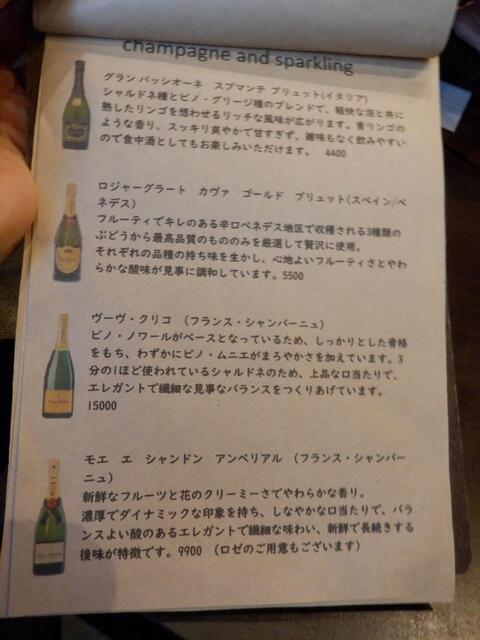 champagne and sparkling
グラン パッシオーネ　スプマンテ ブリュット(イタリア)
シャルドネ種とピノ・グリージ種のブレンドで、軽快な泡と共に
熟したリンゴを想わせるリッチな風味が広がります。青リンゴの
ような香り、スッキリ爽やかで甘すぎず、雑味もなく飲みやすい
ので食中酒としてもお楽しみいただけます。　4400
ロジャーグラート　カヴァ　ゴールド　ブリュット(スペイン/ペ
ネデス)
フルーティでキレのある辛口ペネデス地区で収穫される3種類の
ぶどうから最高品質のもののみを厳選して贅沢に使用。
それぞれの品種の持ち味を生かし、心地よいフルーティさとやわ
らかな酸味が見事に調和しています。5500
ヴーヴ・クリコ　(フランス・シャンパーニュ)
ピノ・ノワールがベースとなっているため、しっかりとした骨格
をもち、わずかにピノ・ムニエがまろやかさを加えています。3
分の1ほど使われているシャルドネのため、上品な口当たりで、
エレガントで繊細な見事なバランスをつくりあげています。
15000
モエ　エ　シャンドン　アンペリアル　(フランス・シャンパー
ニュ)
新鮮なフルーツと花のクリーミーさでやわらかな香り。
濃厚でダイナミックな印象を持ち、しなやかな口当たりで、バラ
ンスよい酸のあるエレガントで繊細な味わい、新鮮で長続きする
後味が特徴です。9900　(ロゼのご用意もございます)